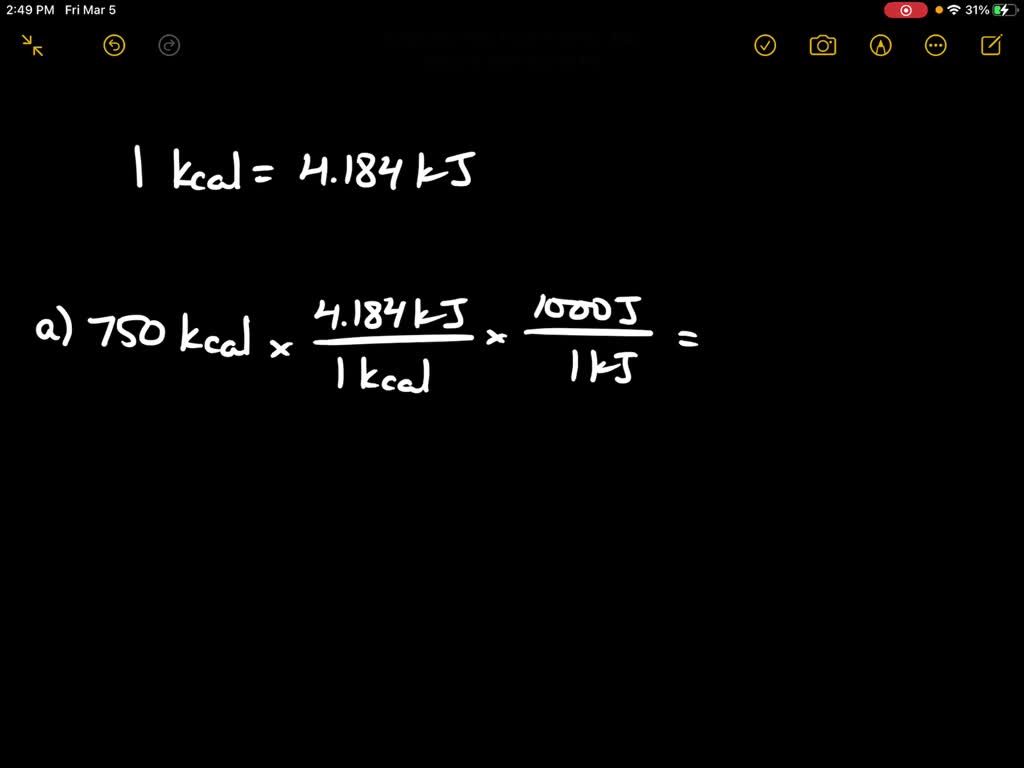 2:49 PM Fri Mar 5 31%
1 kcal = 4.184 kJ
a) 750 kcal × 4.184 kJ / 1 kcal × 1000 J / 1 kJ =